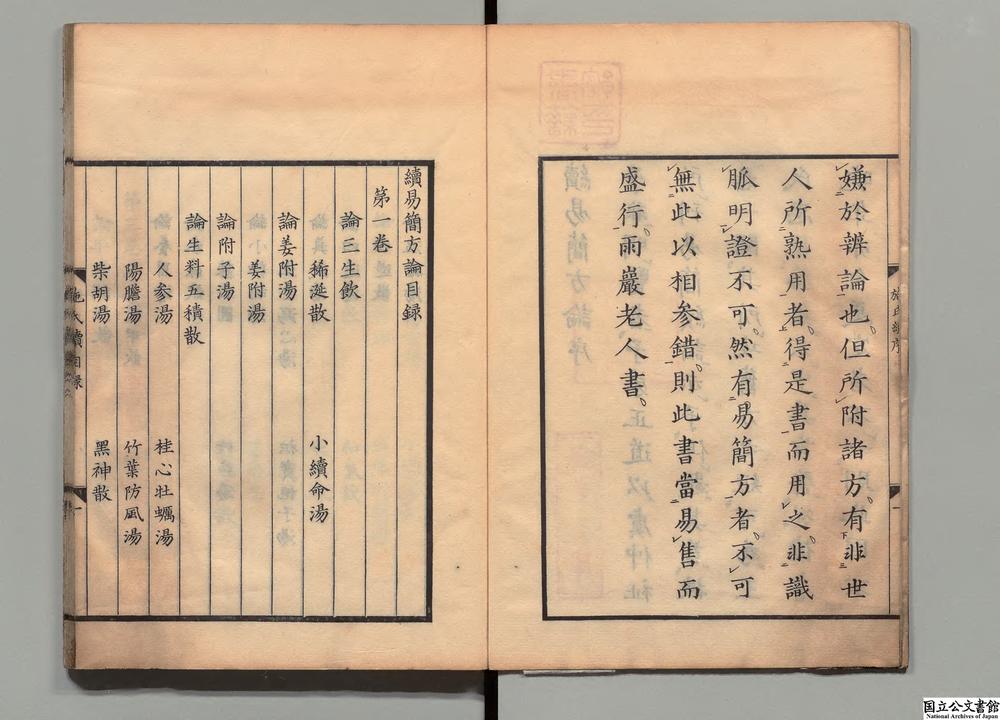 嫌於辨論也但所附諸方有非世
人所熟用者得是書而用之非識
脈明證不可然有易簡方者不可
無此以相参錯則此書當易售而
盛行雨巖老人書
續易簡方論目録
第一卷
論三生飲
稀涎散
小續命湯
論姜附湯
姜附湯
論附子湯
論生料五積散
人参湯
桂心牡蠣湯
陽膽湯
竹葉防風湯
柴胡湯
黑神散
施氏續目録
一
国立公文書館
National Archives of Japan